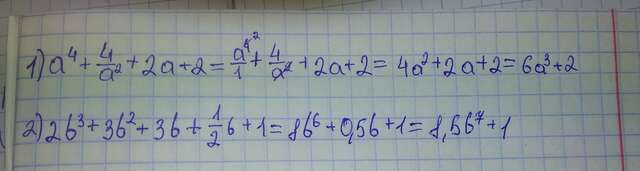 1) a⁴ + 4/a² + 2a + 2 = a⁴²/1 + 4/a² + 2a + 2 = 4a² + 2a + 2 = 6a³ + 2
2) 2b³ + 3b² + 3b + 1/2 b + 1 = 8b⁶ + 0,5b + 1 = 8,5b⁷ + 1